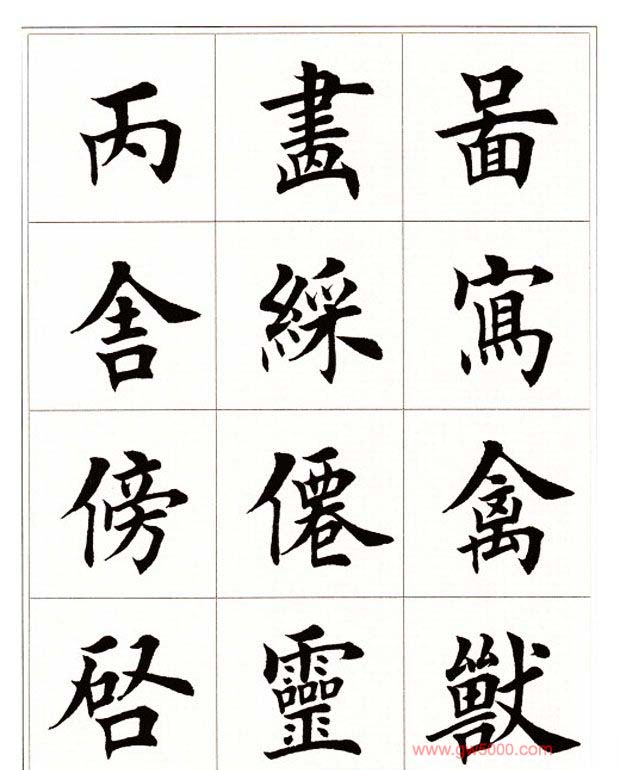 圖寫禽獸
畫綵僊靈
丙舍傍啓
www.gw5000.com